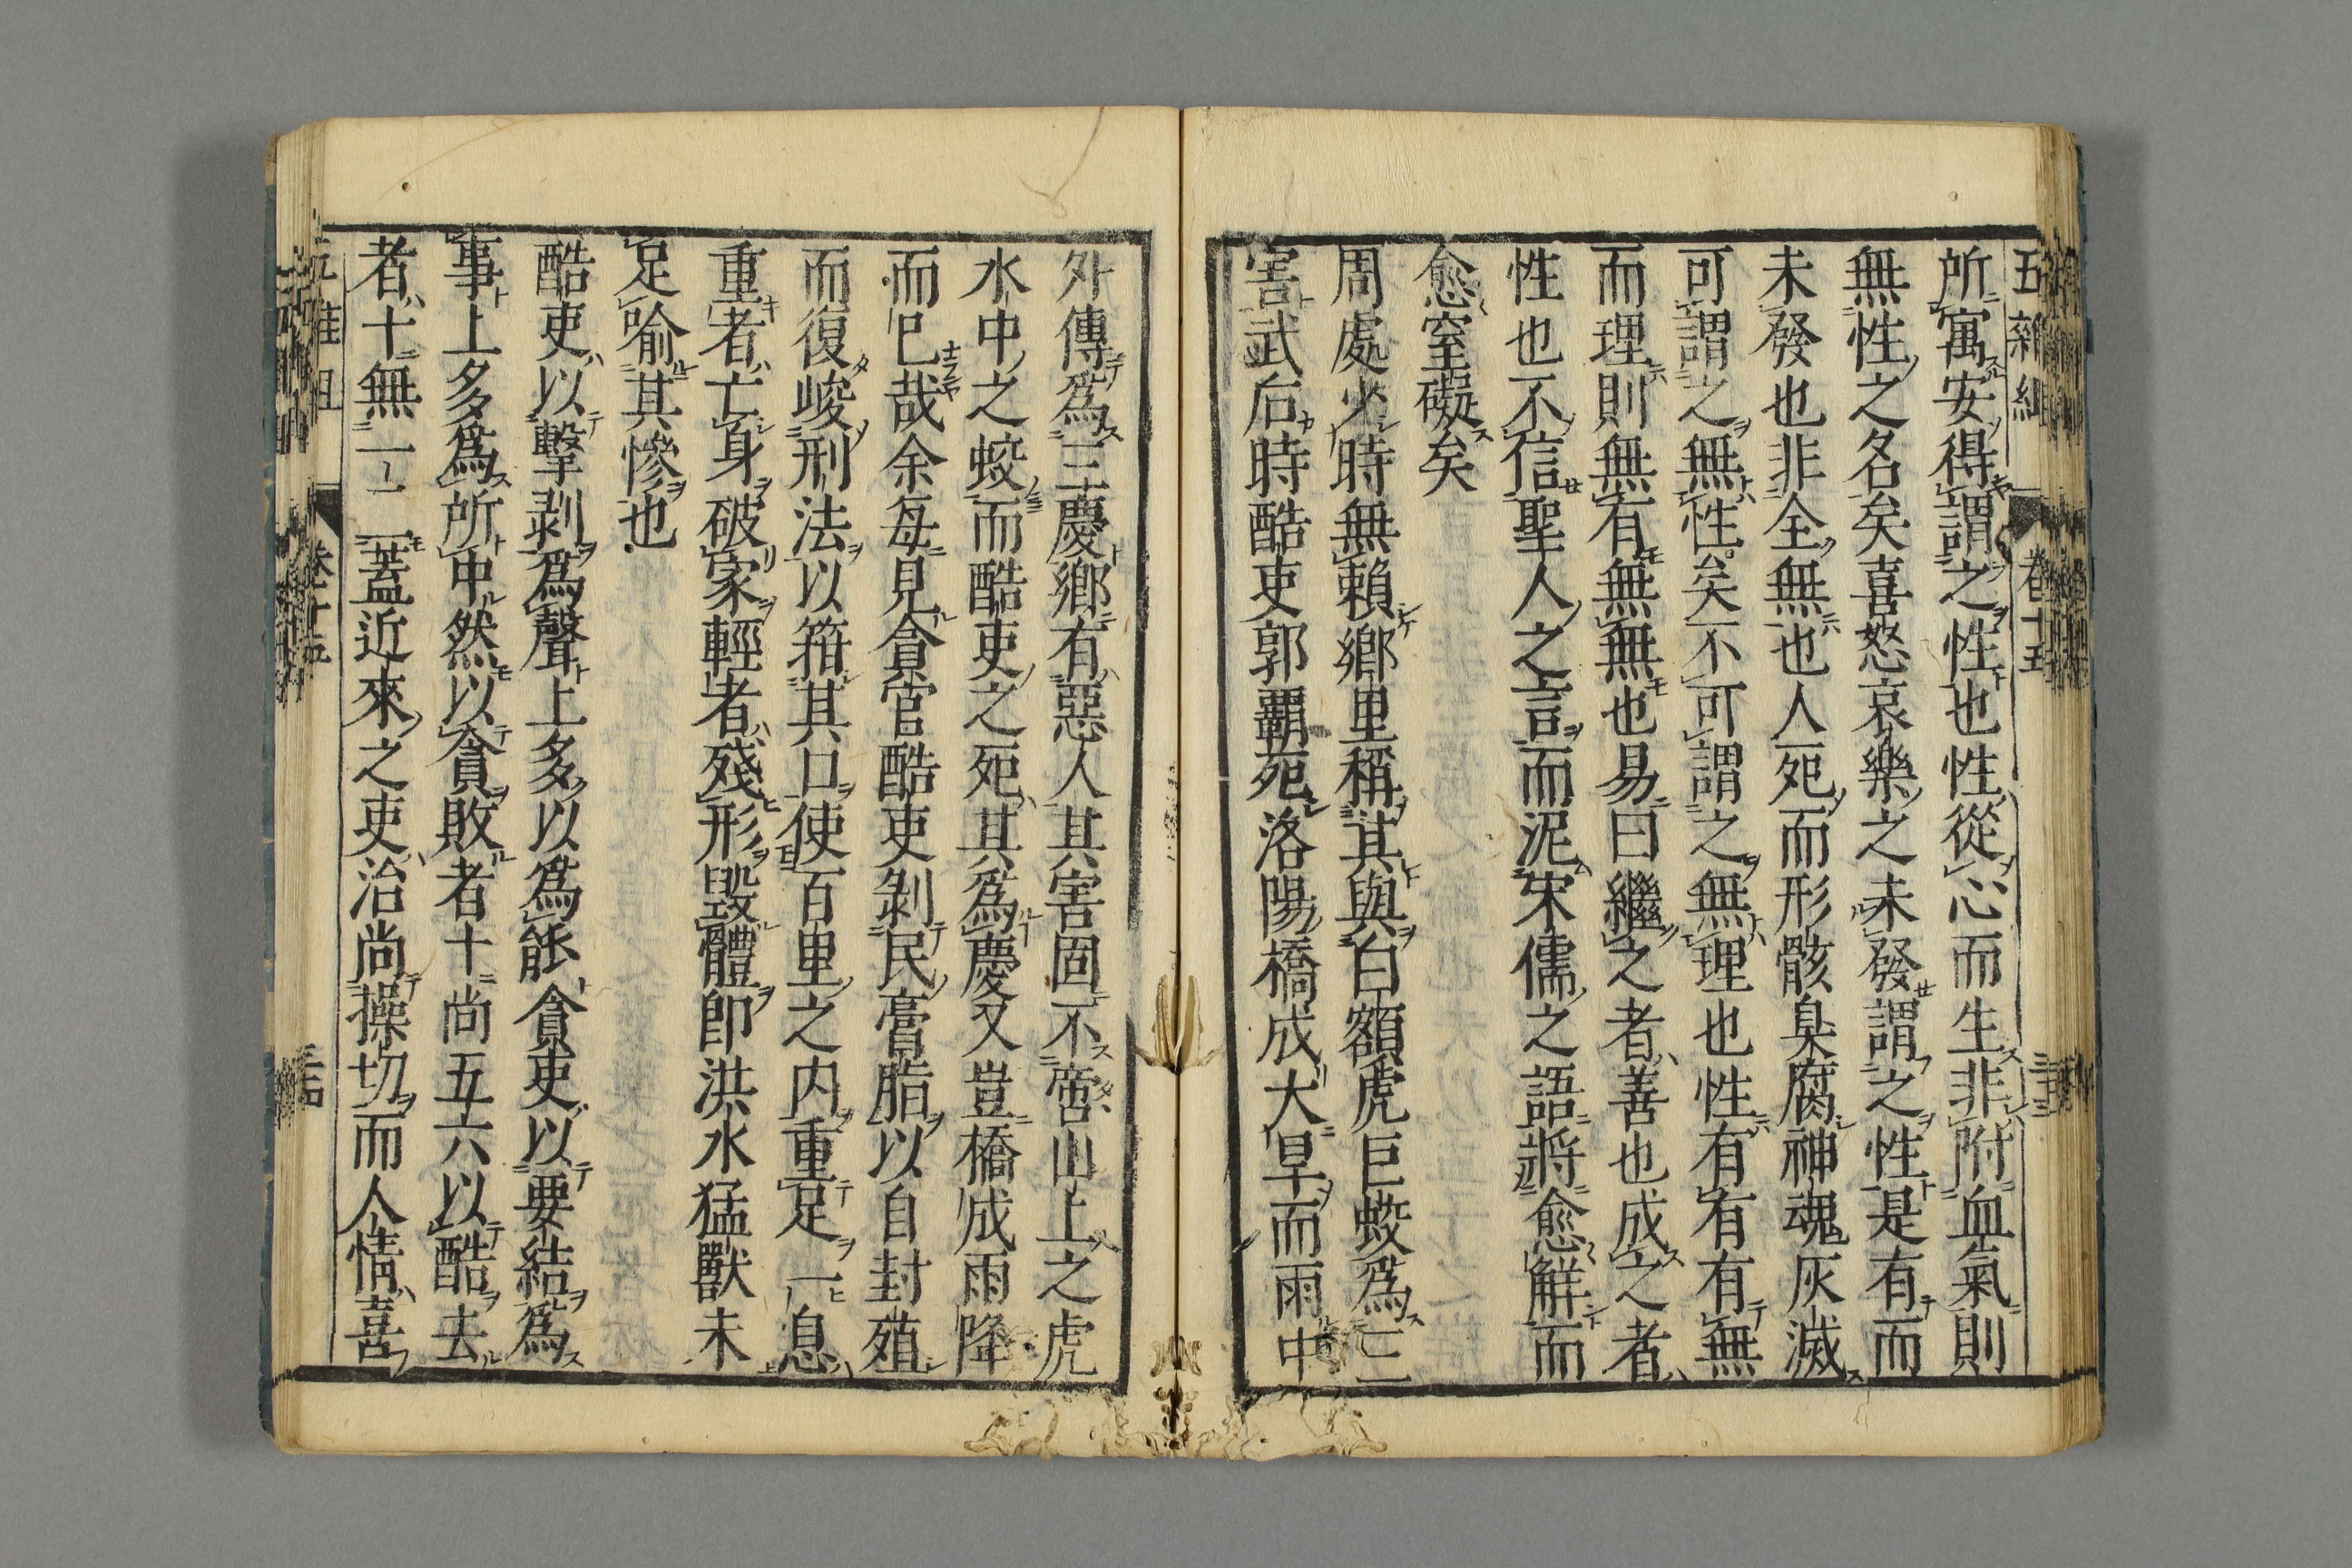 五雜組 卷十五
所寓安得謂之性也性從心而生非附血氣則
無性之名矣喜怒哀樂之未發謂之性是有而
未發也非全無也人死而形骸臭腐神魂灰滅
可謂之無性矣不可謂之無理也性有有有無
而理則無有無無也易曰繼之者善也成之者
性也不信聖人之言而泥宋儒之語將愈解而
愈窒礙矣
周處少時無賴鄉里稱其與白額虎巨蛟爲三
害武后時酷吏郭霸死洛陽橋成大旱而雨中
外傳爲三慶鄉有惡人其害固不啻山上之虎
水中之蛟而酷吏之死其爲慶又豈橋成雨降
而已哉余每見貪官酷吏剝民膏脂以自封殖
而復峻刑法以箝其口使百里之内重足一息
重者亡身破家輕者殘形毀體卽洪水猛獸未
足喻其慘也
酷吏以擊剥爲聲上多以爲能貪吏以要結爲
事上多爲所中然以貪敗者十尚五六以酷去
者十無一二蓋近來之吏治尚操切而人情喜